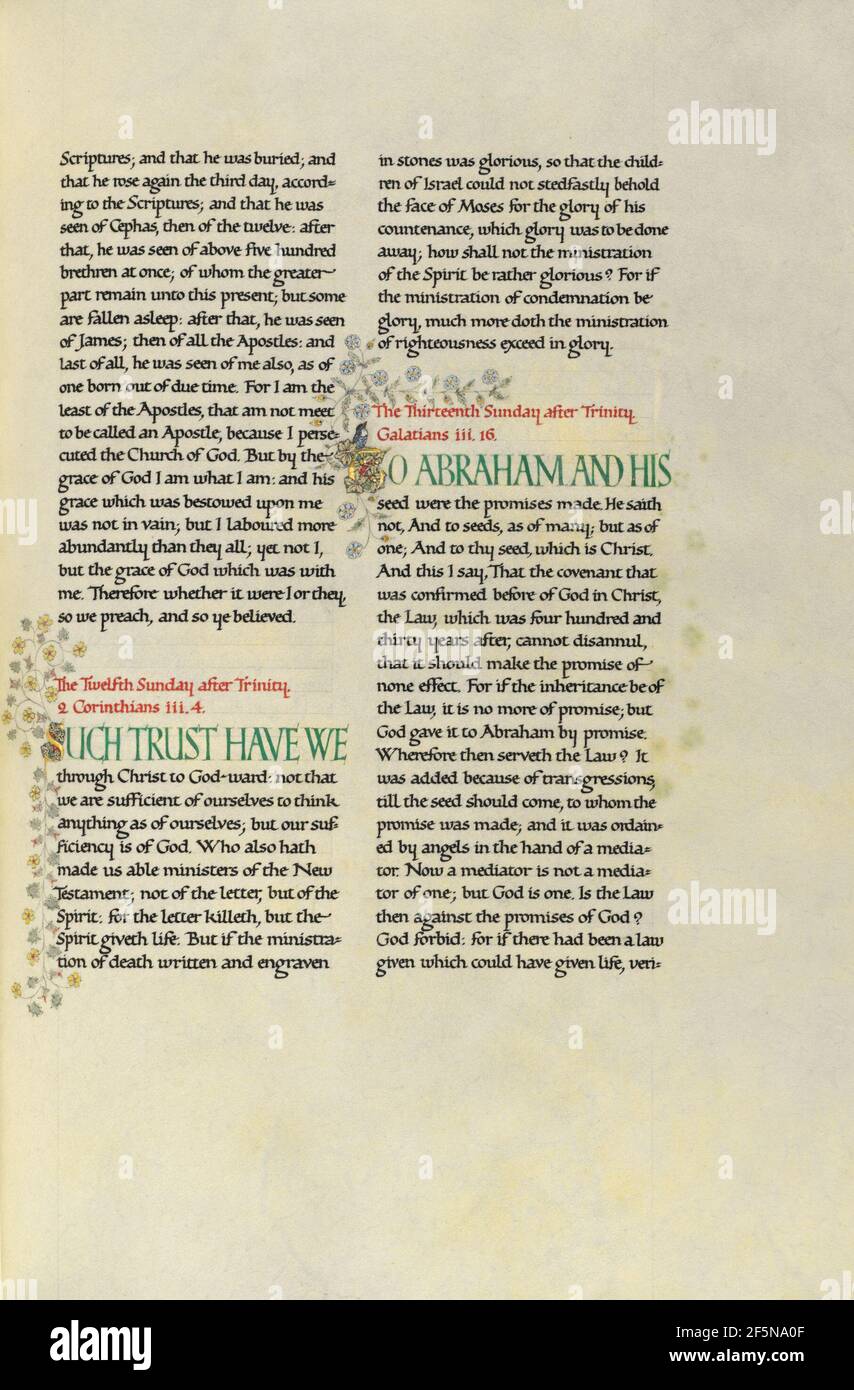 Scriptures; and that he was buried; and
that he rose again the third day, accord=
ing to the Scriptures; and that he was
seen of Cephas, then of the twelve: after
that, he was seen of above five hundred
brethren at once; of whom the greater
part remain unto this present; but some
are fallen asleep: after that, he was seen
of James; then of all the Apostles: and
last of all, he was seen of me also, as of
one born out of due time. For I am the
least of the Apostles, that am not meet
to be called an Apostle, because I perse=
cuted the Church of God. But by the
grace of God I am what I am: and his
grace which was bestowed upon me
was not in vain; but I laboured more
abundantly than they all; yet not I,
but the grace of God which was with
me. Therefore whether it were I or they,
so we preach, and so ye believed.
The Twelfth Sunday after Trinity.
2 Corinthians iii. 4.
SUCH TRUST HAVE WE
through Christ to God-ward: not that
we are sufficient of ourselves to think
anything as of ourselves; but our suf=
ficiency is of God. Who also hath
made us able ministers of the New
Testament; not of the letter, but of the
Spirit: for the letter killeth, but the
Spirit giveth life. But if the ministra=
tion of death written and engraven
in stones was glorious, so that the child=
ren of Israel could not stedfastly behold
the face of Moses for the glory of his
countenance, which glory was to be done
away; how shall not the ministration
of the Spirit be rather glorious? For if
the ministration of condemnation be
glory, much more doth the ministration
of righteousness exceed in glory.
The Thirteenth Sunday after Trinity.
Galatians iii. 16.
TO ABRAHAM AND HIS
seed were the promises made. He saith
not, And to seeds, as of many; but as of
one; And to thy seed, which is Christ.
And this I say, That the covenant that
was confirmed before of God in Christ,
the Law, which was four hundred and
thirty years after, cannot disannul,
that it should make the promise of
none effect. For if the inheritance be of
the Law, it is no more of promise; but
God gave it to Abraham by promise.
Wherefore then serveth the Law? It
was added because of transgressions,
till the seed should come, to whom the
promise was made; and it was ordain=
ed by angels in the hand of a media=
tor. Now a mediator is not a media=
tor of one; but God is one. Is the Law
then against the promises of God?
God forbid: for if there had been a law
given which could have given life, veri=
alamy
alamy
alamy
alamy
alamy
Image ID: 2F5NA0F
www.alamy.com